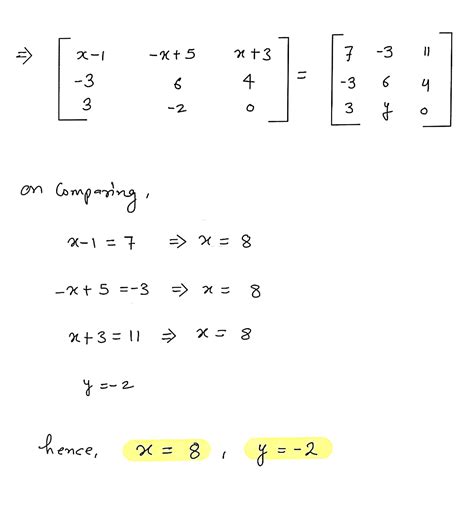 ⇒ [ x-1 -x+5 x+3 ] = [ 7 -3 11 ]
[ -3 6 4 ] [ -3 6 4 ]
[ 3 -2 0 ] [ 3 y 0 ]
on Comparing,
x-1 = 7 ⇒ x = 8
-x+5 = -3 ⇒ x = 8
x+3 = 11 ⇒ x = 8
y = -2
hence, x = 8 , y = -2